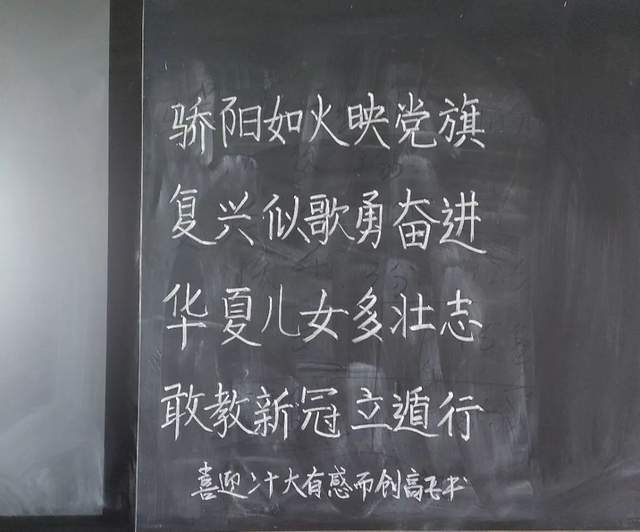 骄阳如火映党旗
复兴似歌勇奋进
华夏儿女多壮志
敢教新冠立遁行
喜迎二十大有感而创高飞书